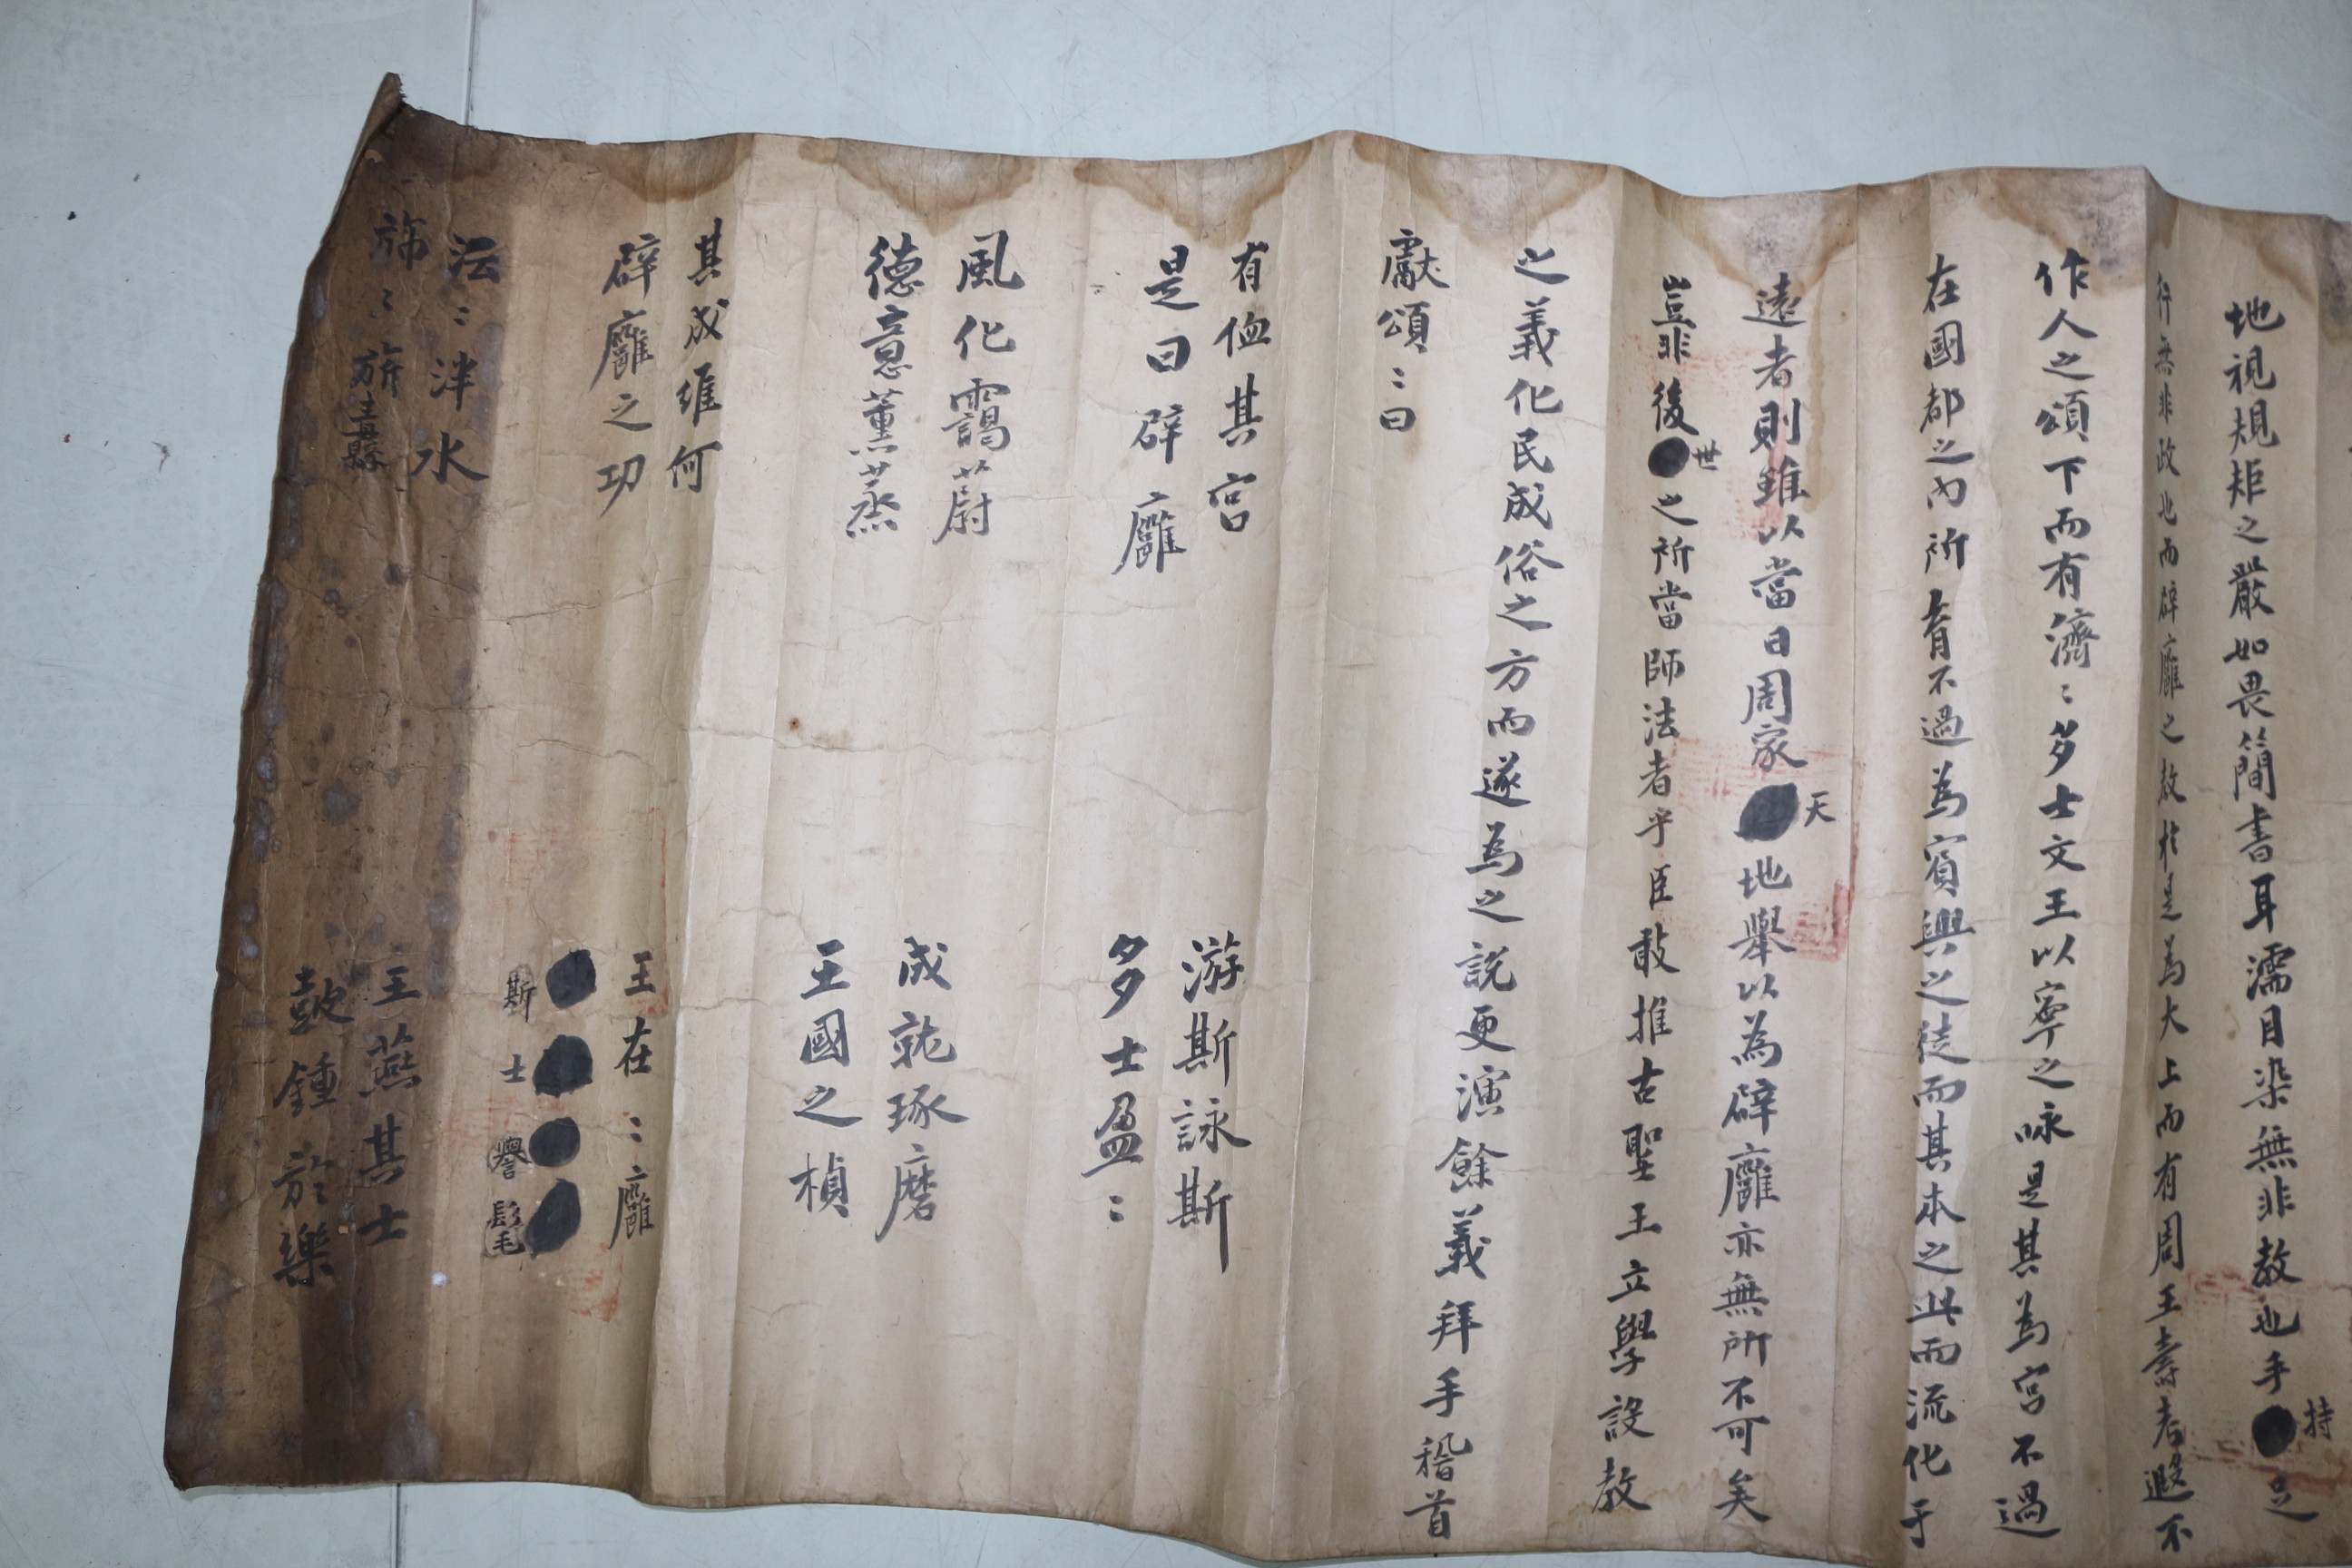 地視規矩之嚴如畏簡書耳濡目染無非教也手●持足
行無非政也而辟廱之教於是為大上而有周王壽考遐不
作人之頌下而有濟〻多士文王以寧之咏是其為宮不過
在國都之內所育不過為賓興之徒而其本之此而流化于
遠者則雖以當日周家●天地舉以為辟廱亦無所不可矣
豈非後●世之所當師法者乎臣敢推古聖王立學設教
之義化民成俗之方而遂為之說更演餘義拜手稽首
獻頌〻曰
有侐其宮 游斯詠斯
是曰辟廱 多士盈〻
風化靄蔚 成就琢磨
德意薰蒸 王國之楨
其成維何 王在〻廱
辟廱之功 ●●●●斯士譽髦
沄〻泮水 王燕其士
旆〻旂 鼓鍾於樂